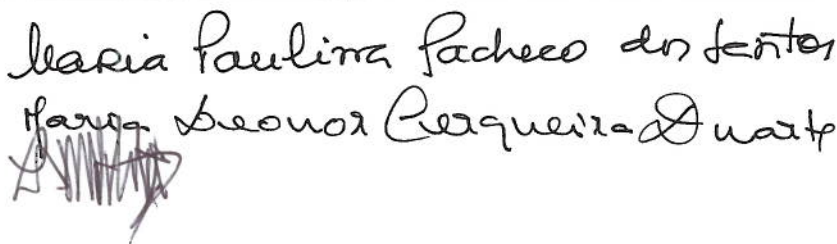 Maria Paulina Pacheco dos Santos
Maria Leonor Cerqueira Duarte